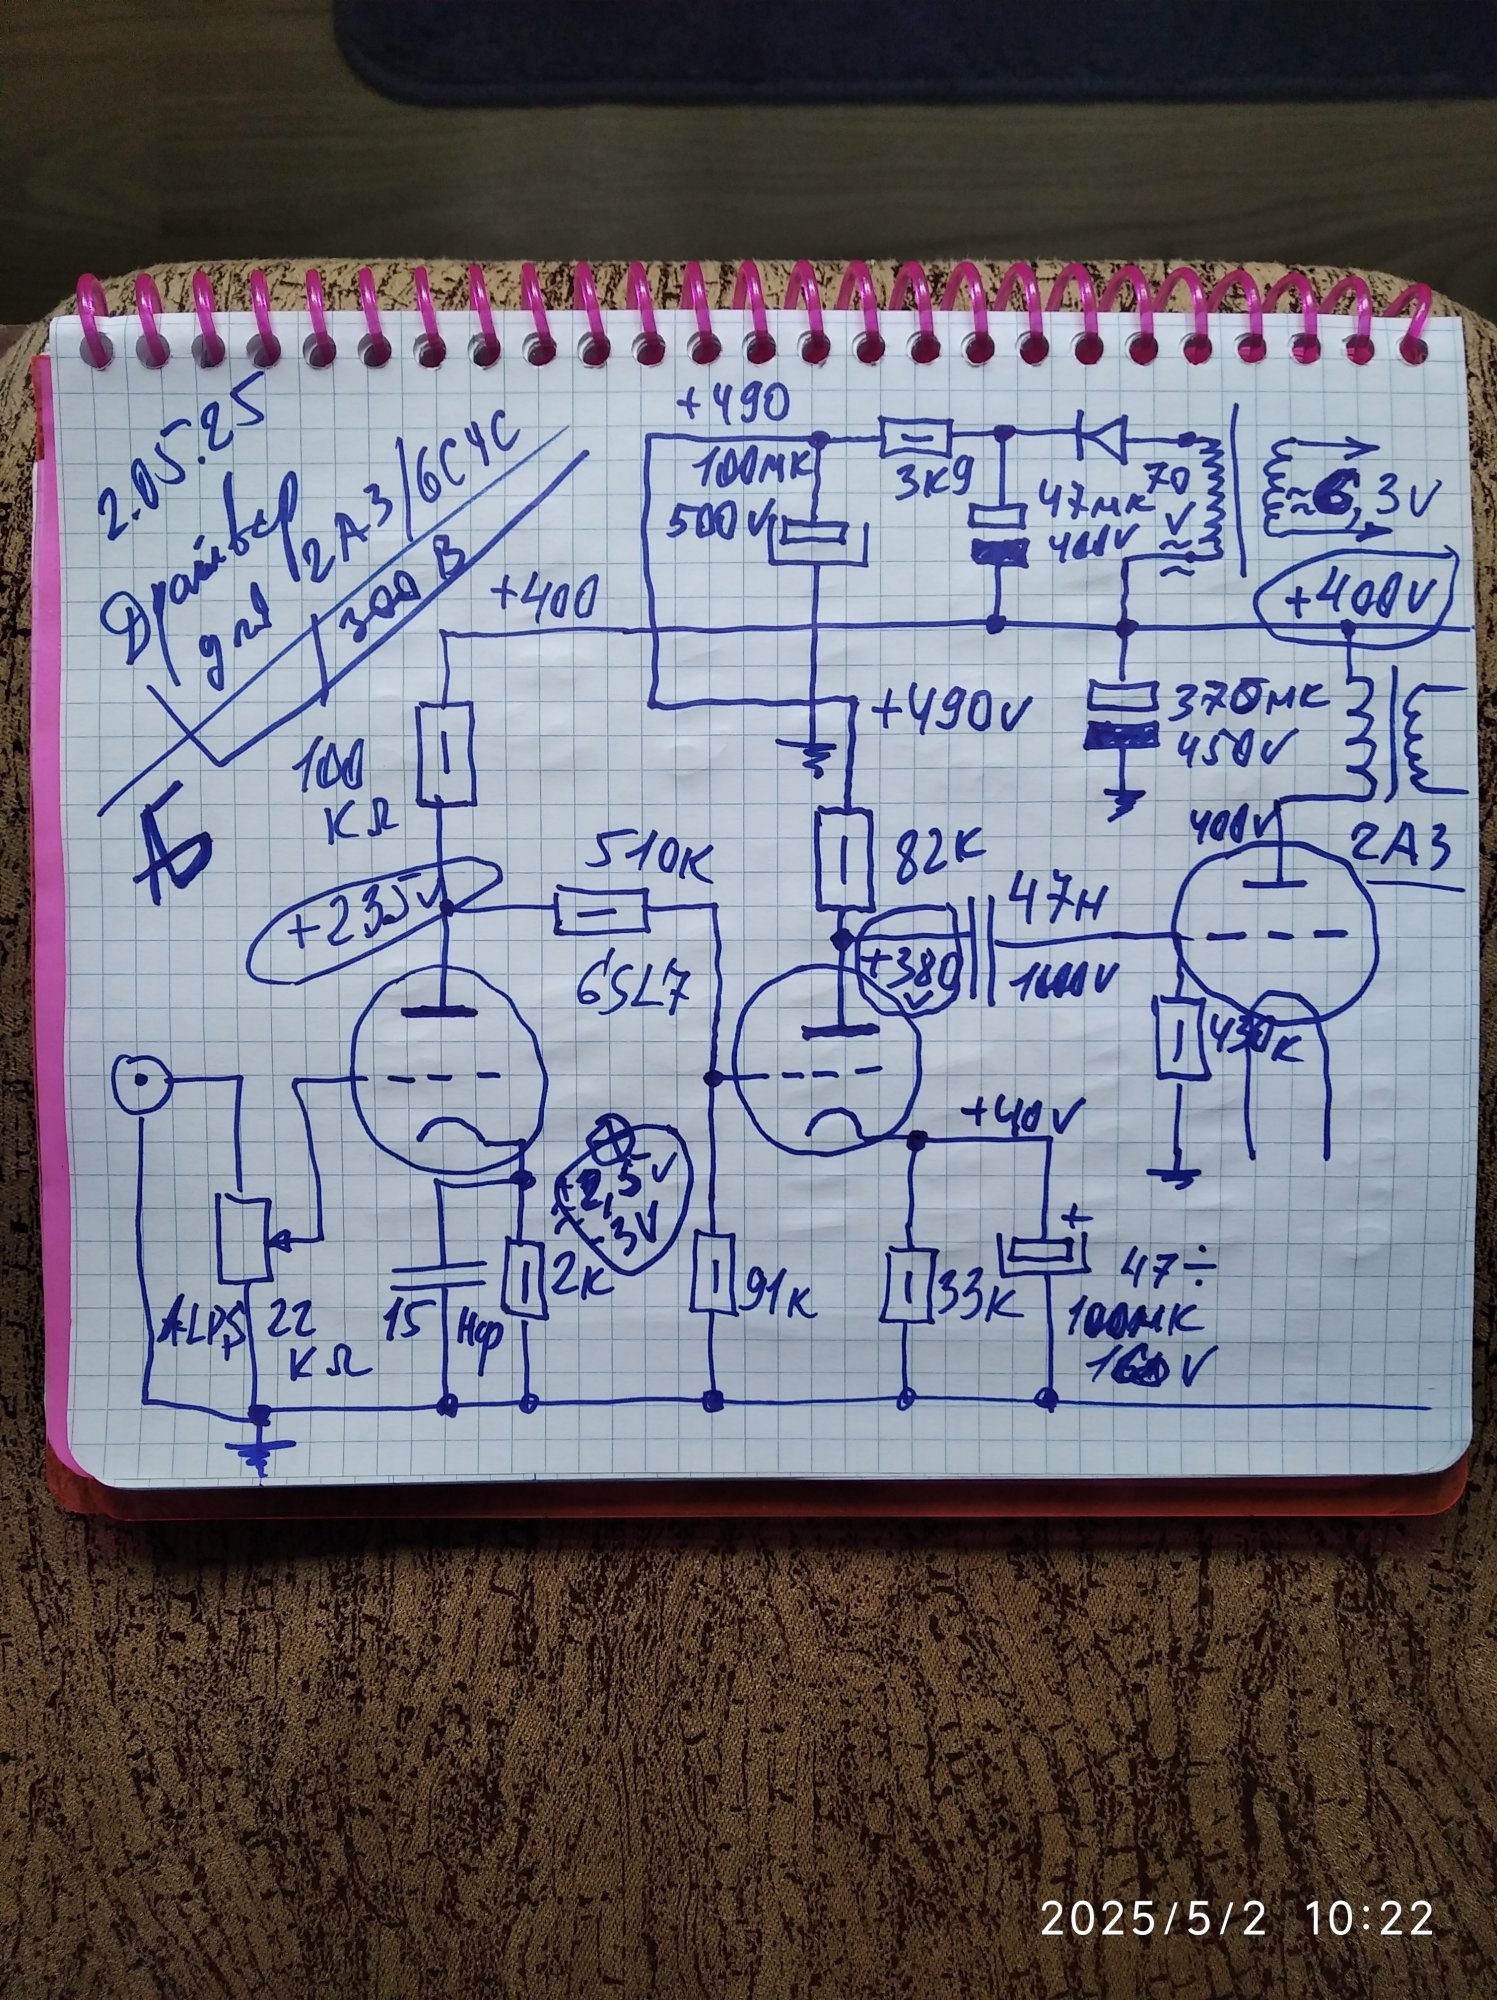 2.05.25
Драйвер
для 2A3/6С4С
300В
АБ
+490
100мк
500V
3К9
47мк
400V
70
V
≈
≈6,3V
+400
+400V
100
КΩ
+490V
370мк
450V
510К
82К
400V
2A3
+235V
6SL7
+380
V
47Н
1600V
430К
+2,5V
3V
+40V
ALPS 22
КΩ
15 Нф
2К
91К
33К
+
47÷
100МК
160V
2025/5/2 10:22